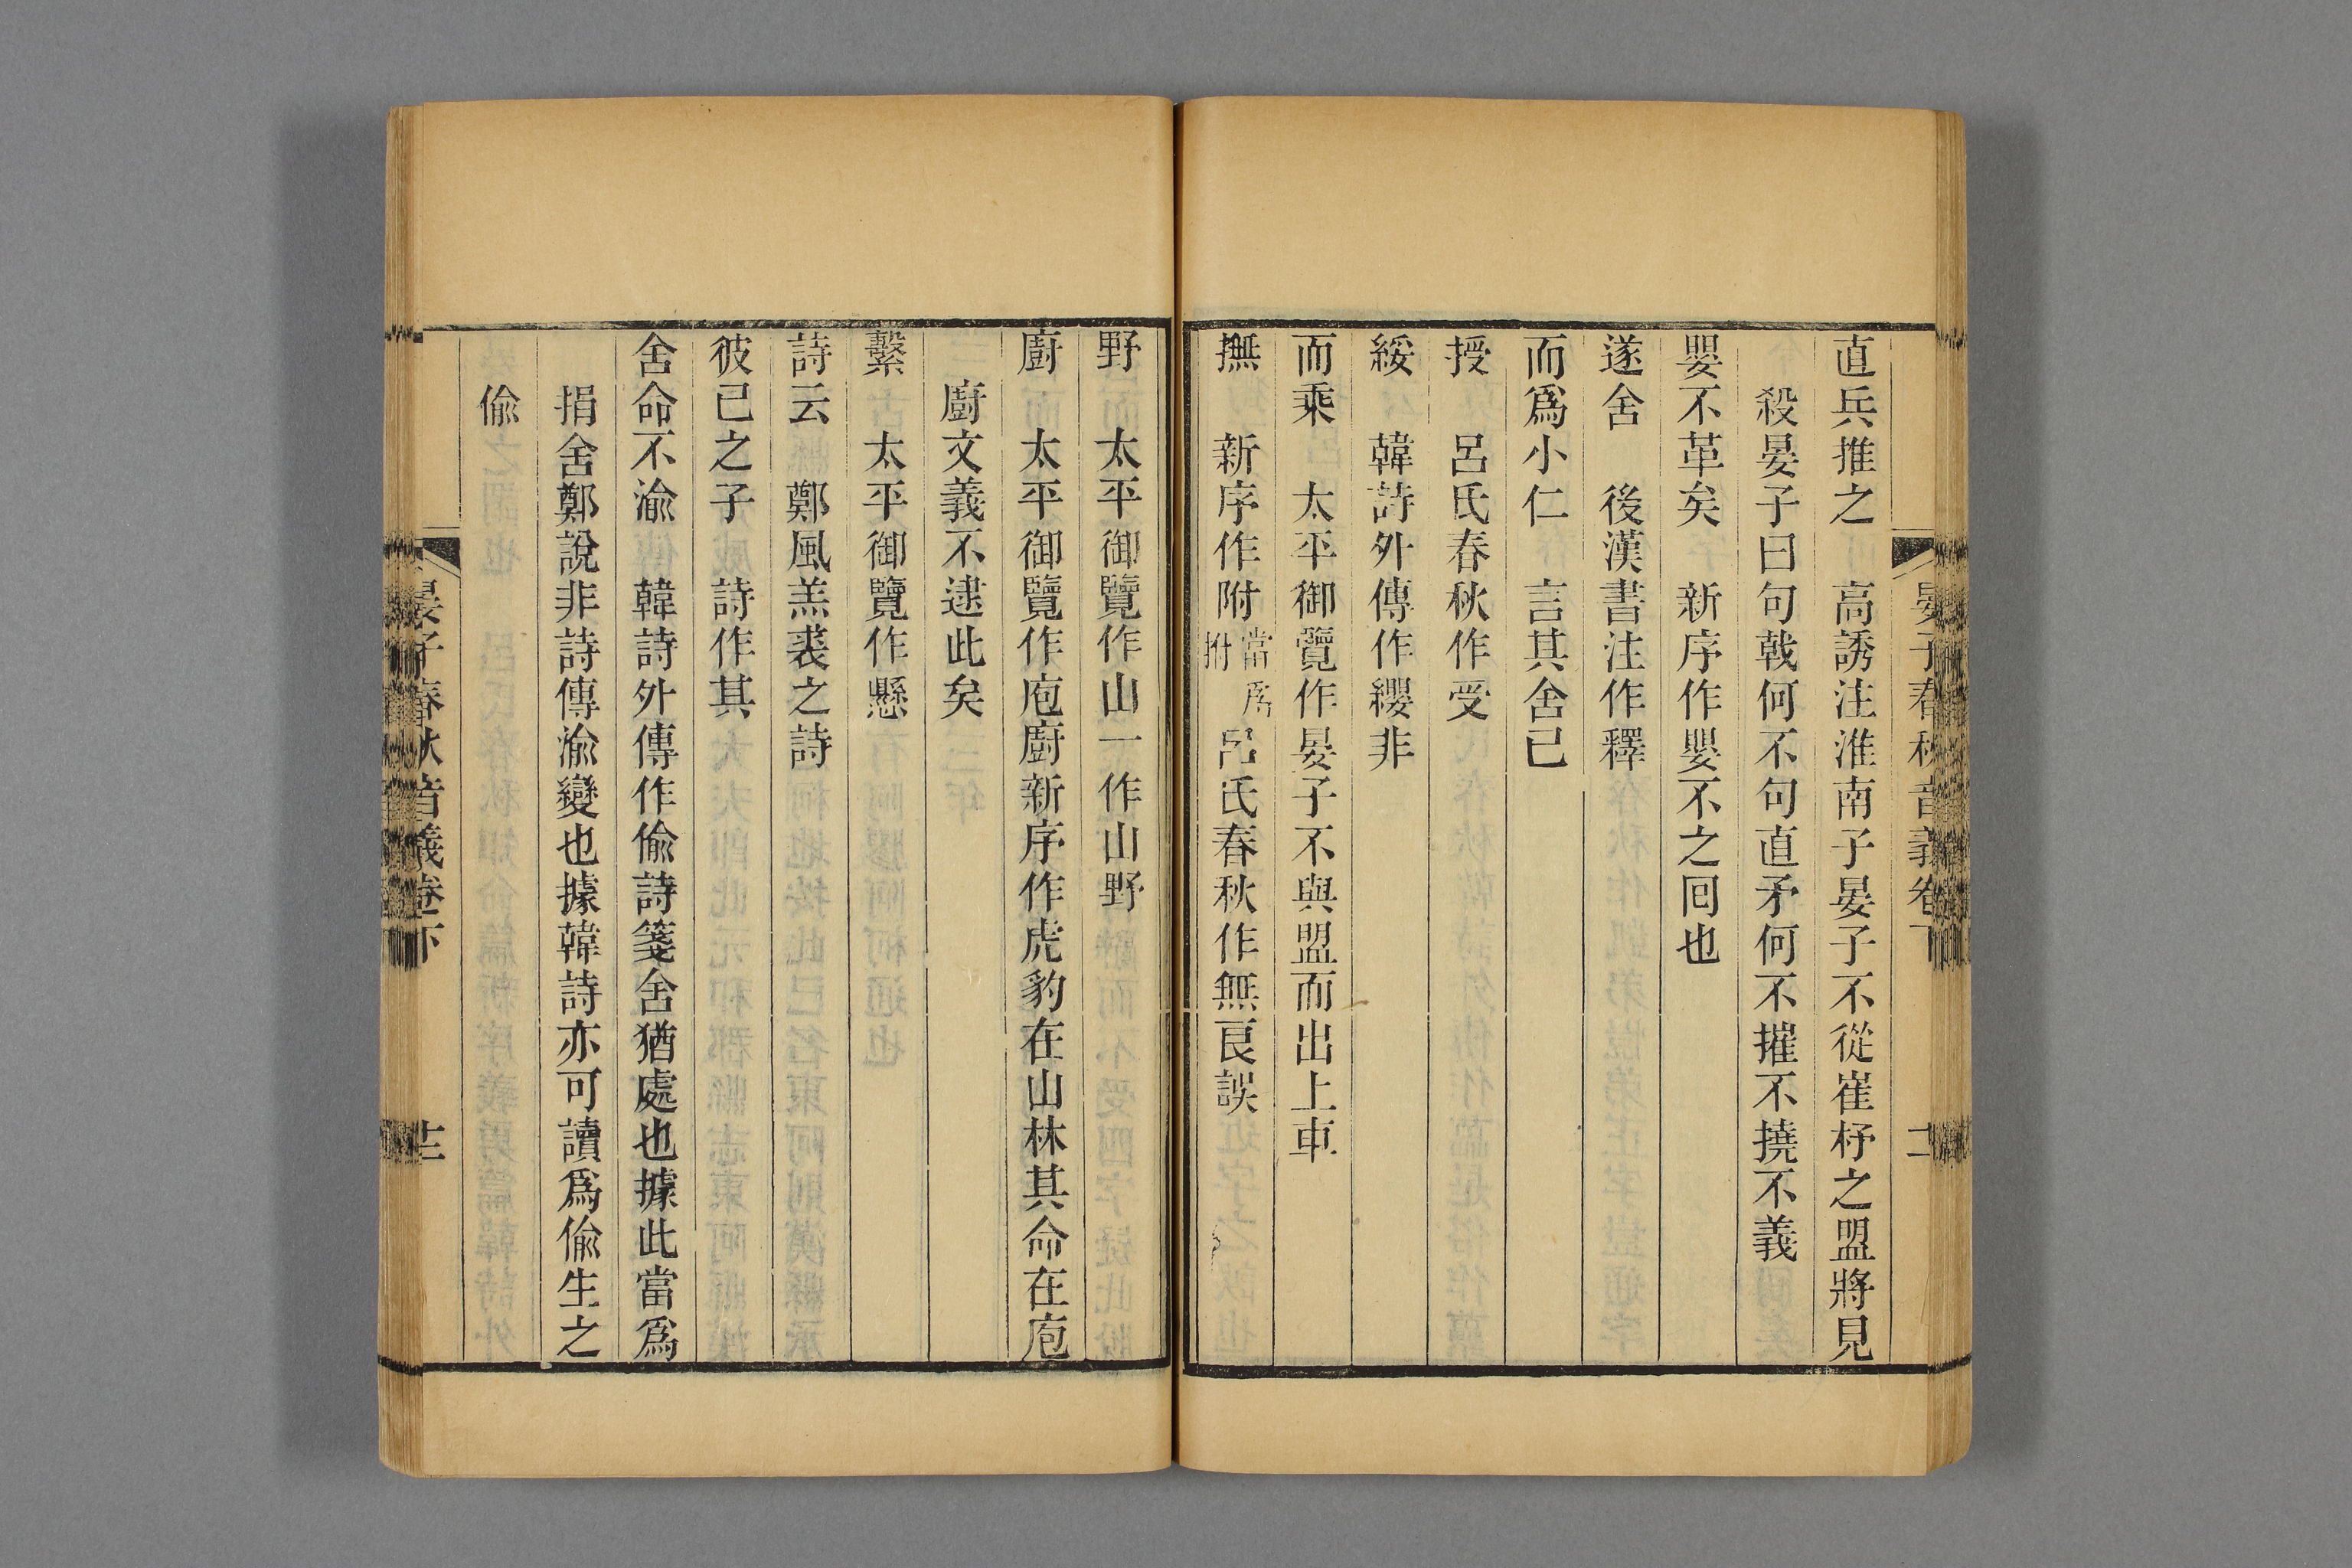 直兵推之　高誘注淮南子晏子不從崔杼之盟將見
殺晏子曰句戟何不句直矛何不摧不撓不義
嬰不革矣　新序作嬰不之回也
遂舍　後漢書注作釋
而爲小仁　言其舍己
授　呂氏春秋作受
綏　韓詩外傳作纓非
而乘　太平御覽作晏子不與盟而出上車
撫　新序作附當爲拊呂氏春秋作無良誤
野　太平御覽作山一作山野
廚　太平御覽作庖廚新序作虎豹在山林其命在庖
廚文義不逮此矣
繫　太平御覽作懸
詩云　鄭風羔裘之詩
彼己之子　詩作其
舍命不渝　韓詩外傳作偷詩箋舍猶處也據此當爲
捐舍鄭說非詩傳渝變也據韓詩亦可讀爲偷生之
偷
晏子春秋音義卷下